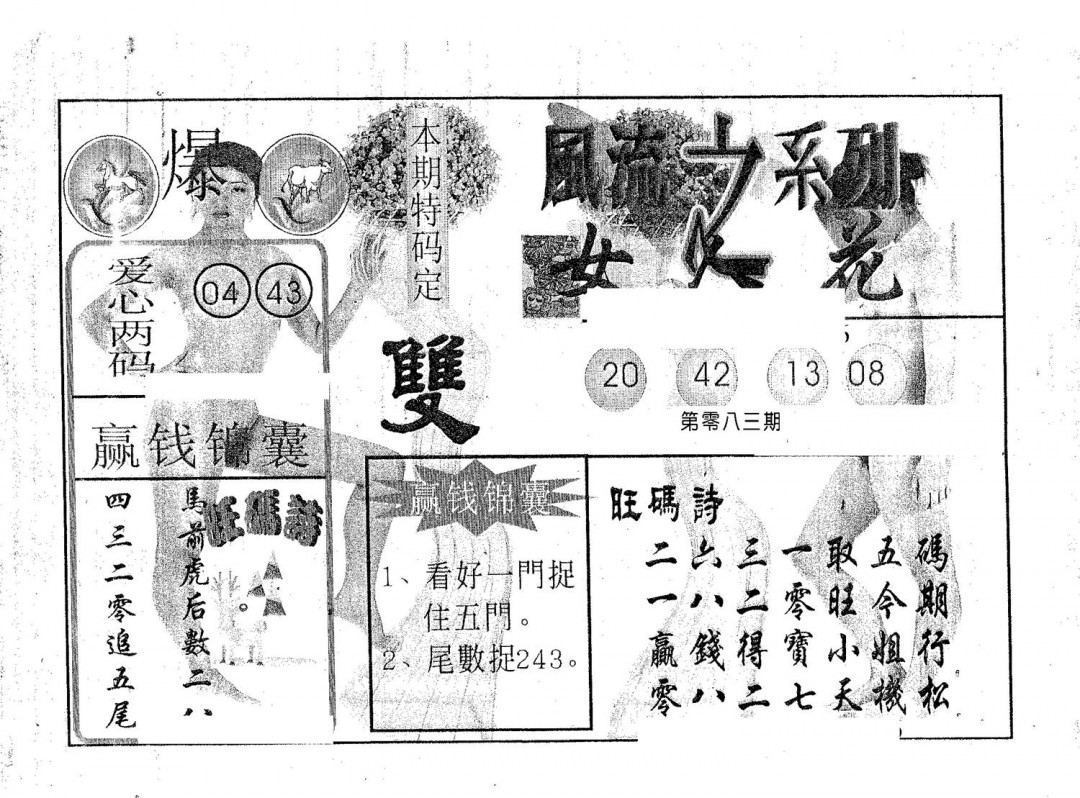 爆
爱心两码
04 43
本期特码定
雙
風流之系列
女人花
20 42 13 08
第零八三期
赢钱锦囊
旺碼詩
馬前虎后數二八
四三二零追五尾
赢钱锦囊
1、看好一門捉
住五門。
2、尾數捉243。
旺碼詩
二六三一取五碼
一八二零旺今期
贏錢得寶小姐行
零八二七天機松